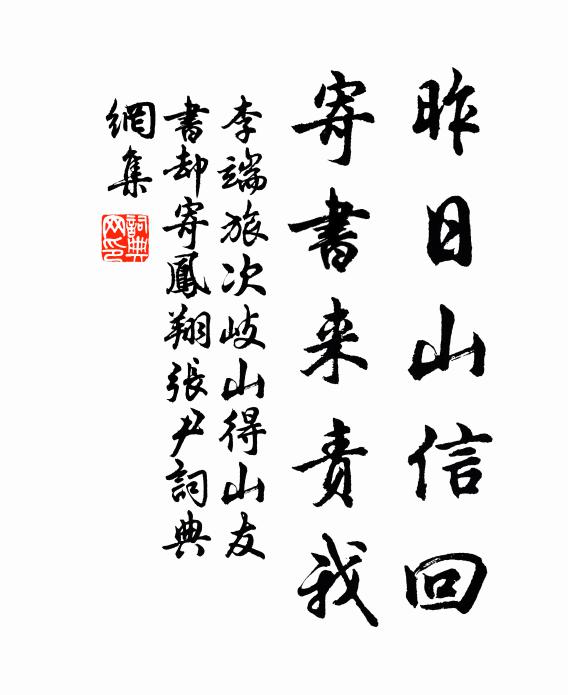 昨日山信回
寄書来责我
李端旅次岐山得山友
書却寄鳳翔張尹詞典
網集
詞典網印